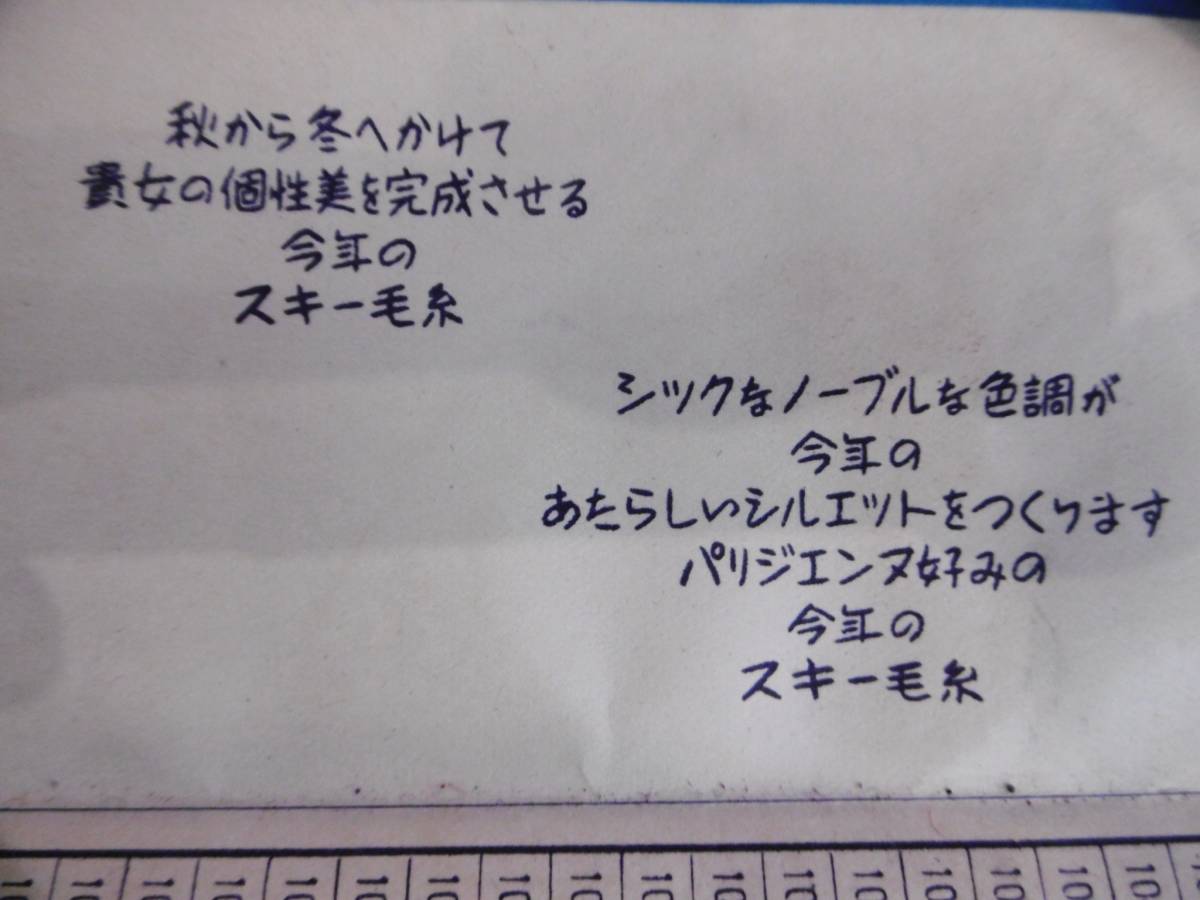 秋から冬へかけて
貴女の個性美を完成させる
今年の
スキー毛糸
シツクなノーブルな色調が
今年の
あたらしいシルエットをつくります
パリジエンヌ好みの
今年の
スキー毛糸
10 10 10 10 10 10 10 10 10 10 10 10 10 10 10 10 10